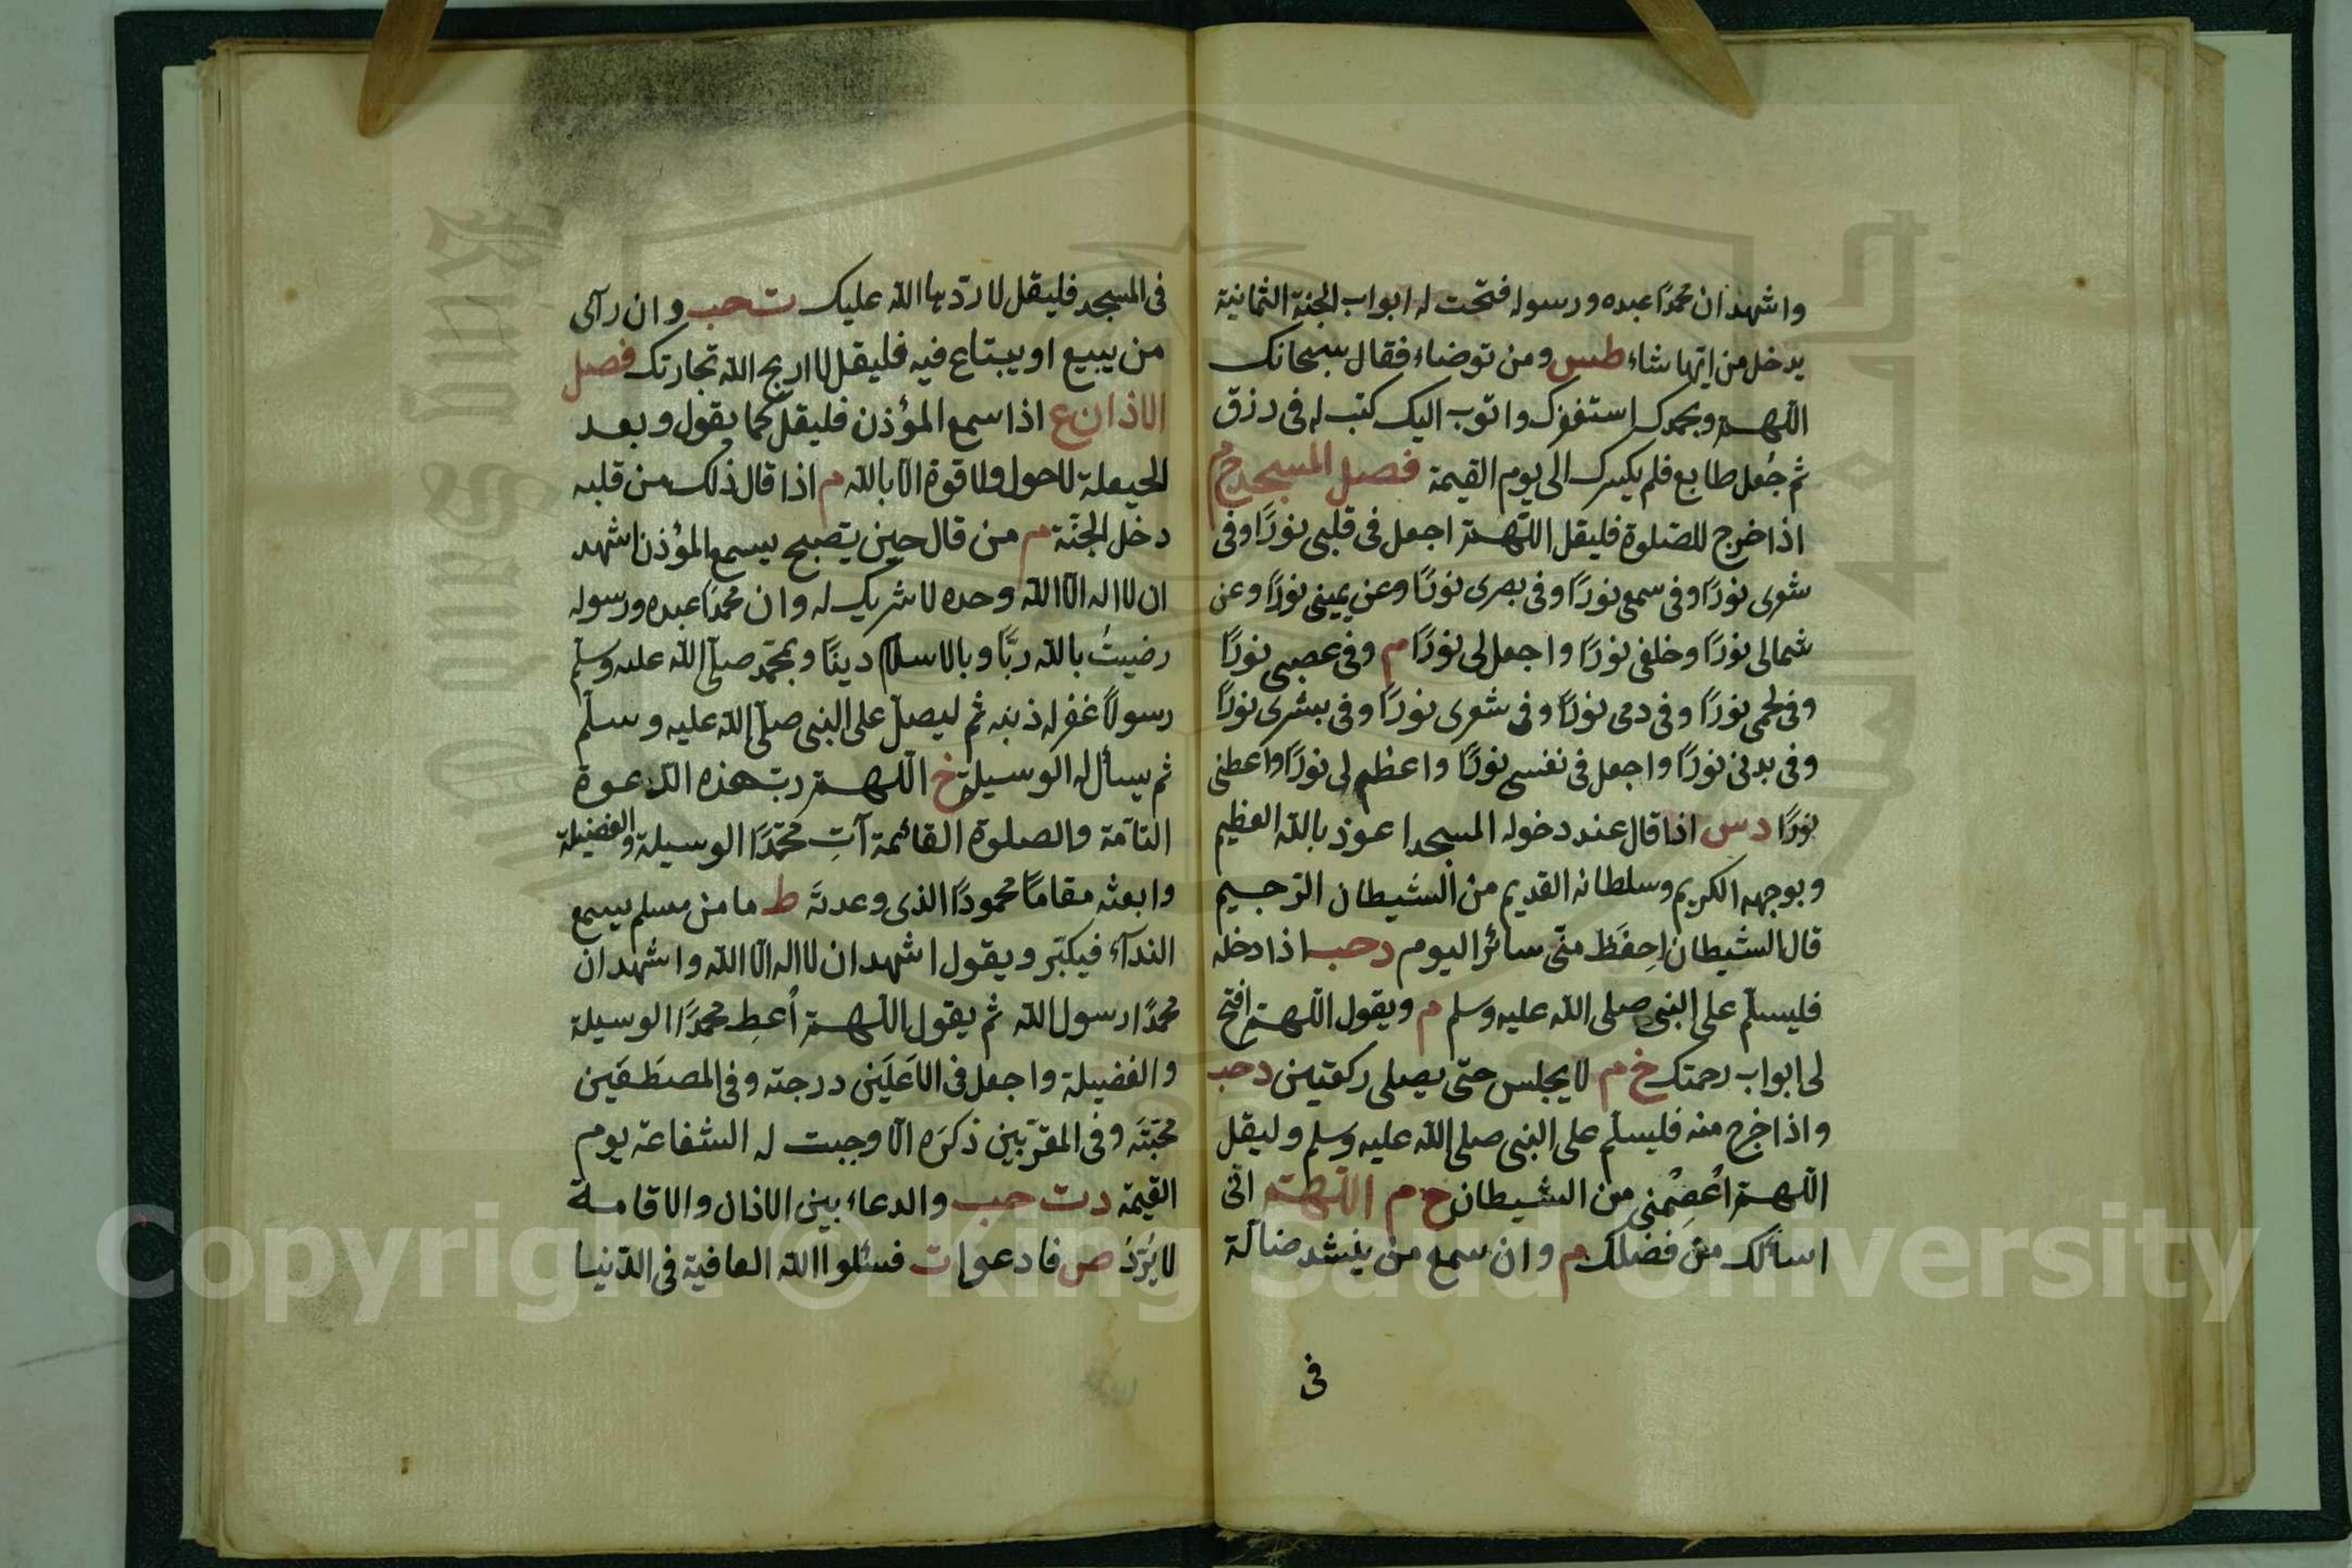 واشهد ان محمدًا عبده ورسوله فتحت له ابواب الجنة الثمانية
يدخل من ايّها شاء طس ومن توضاء فقال سبحانك
اللّهم وبحمدك استغفرك واتوب اليك كتب له فى رزق
ثم جُعل طابع فلم يكسرك الى يوم القيمة فصل المسجد خ م
اذا خرج للصّلوة فليقل اللّهمّ اجعل فى قلبى نورًا وفى
شعرى نورًا وفى سمعى نورًا وفى بصرى نورًا وعن يمينى نورًا وعن
شمالى نورًا وخلفى نورًا واجعل لى نورًا م وفى عصبى نورًا
وفى لحمى نورًا وفى دمى نورًا وفى شعرى نورًا وفى بشرى نورًا
وفى بدنى نورًا واجعل فى نفسى نورًا واعظم لى نورًا واعطنى
نورًا دس اذا قال عند دخوله المسجد اعوذ بالله العظيم
وبوجهه الكريم وسلطانه القديم من الشيطان الرّجيم
قال الشيطان اِحفَظ منّى سائر اليوم دحب اذا دخله
فليسلّم على النبى صلى الله عليه وسلم م ويقول اللّهمّ افتح
لى ابواب رحمتك خ م لا يجلس حتى يصلى ركعتين دحب
واذا خرج منه فليسلّم على النبى صلى الله عليه وسلم وليقل
اللّهمّ اعصمنى من الشيطان خ م اللّهمّ انّى
اسألك من فضلك م وان سمع من ينشد ضالّة
فى
فى المسجد فليقل لا ردّها الله عليك ت حب وان رآى
من يبيع او يبتاع فيه فليقل لا اربح الله تجارتك فصل
الاذان ع اذا سمع المؤذن فليقل كما يقول وبعد
الحيعلة لا حول ولا قوة الّا بالله م اذا قال ذلك من قلبه
دخل الجنّة م من قال حين يصبح يسمع المؤذن اشهد
ان لا اله الّا الله وحده لا شريك له وان محمدًا عبده ورسوله
رضيتُ بالله ربًّا وبالاسلام دينًا وبمحمّد صلّى الله عليه وسلّم
رسولًا غفر له ذنبه ثم ليصلّ على النبى صلّى الله عليه وسلّم
ثم يسأل له الوسيلة خ اللّهمّ ربّ هذه الدّعوة
التامّة والصلوة القائمة آتِ محمّدًا الوسيلة والفضيلة
وابعثه مقامًا محمودًا الذى وعدتَه ط ما من مسلم يسمع
الندآء فيكبّر ويقول اشهد ان لا اله الّا الله واشهد ان
محمدًا رسول الله ثم يقول اللّهمّ اُعطِ محمدًا الوسيلة
والفضيلة واجعل فى الاَعلَين درجته وفى المصطَفَين
محبّتَه وفى المقرّبين ذكرَه الّا وجبت له الشفاعة يوم
القيمة دت حب والدعاء بين الاذان والاقامة
لا يُرَدُّ ص فادعوا ت فسئلوا الله العافية فى الدّنيا
Copyright © King Saud University